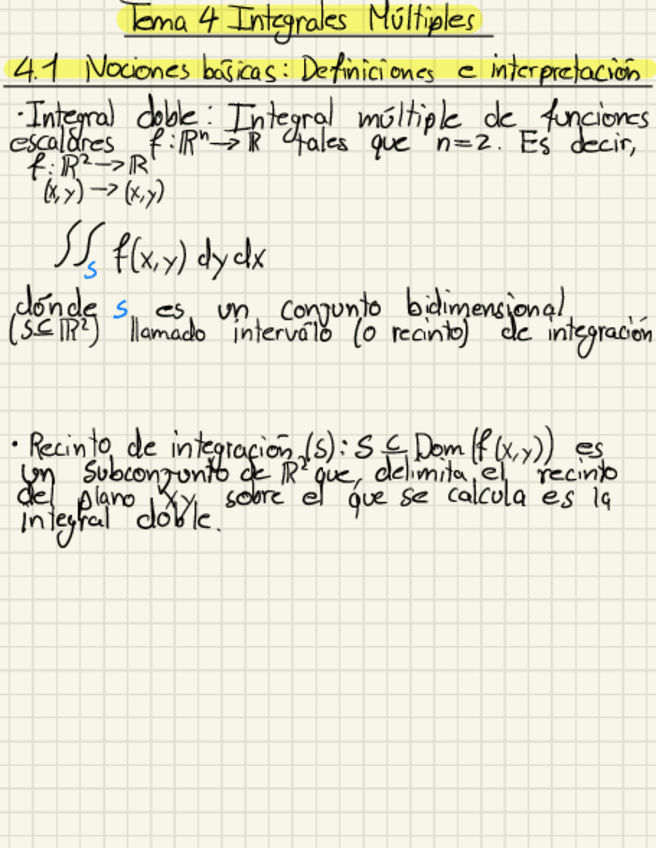 Tema 4 Integrales Múltiples
4.1 Nociones básicas: Definiciones e interpretación
· Integral doble: Integral múltiple de funciones
escalares f: ℝⁿ → ℝ tales que n=2. Es decir,
f: ℝ² → ℝ
(x,y) → (x,y)
∬ₛ f(x,y) dy dx
dónde s es un conjunto bidimensional
(S⊆ℝ²) llamado intervalo (o recinto) de integración
· Recinto de integración (S): S ⊆ Dom (f(x,y)) es
un subconjunto de ℝ² que, delimita el recinto
del plano XY sobre el que se calcula es la
integral doble.